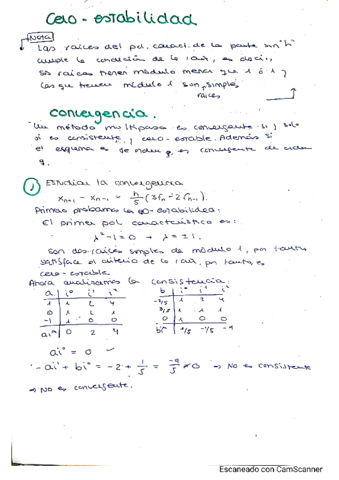 Cero-estabilidad
Nota
Las raíces del pol. caract. de la parte sin "h"
cumple la condición de la raíz, es decir,
sis raices tienen módulo menor que 1 ó 1 y
las que tienen módulo 1 son simples
raíces
Convergencia.
Un método multipaso es convergente si y solo
si es consistente y cero-estable. Además si
el esquema es de orden q, es convergente de orden
q.
1 Estudiar la convergencia
x_{n+1} - x_{n-1} = h/5 (3f_n - 2f_{n-1}).
Primero probamos la 0-estabilidad:
El primer pol característico es:
λ²-1=0 → λ=±1.
son dos raíces simples de módulo 1, por tanto
satisface el criterio de la raíz, por tanto, es
cero-estable.
Ahora analizamos la consistencia:
a i⁰ i¹ i² b i⁰ i¹ i²
1 1 2 4 -2/5 1 2 4
0 1 1 1 3/5 1 1 1
-1 1 0 0 0 1 0 0
ai⁰ 0 2 4 bi⁰ 1/5 -1/5
ai⁰ = 0
-ai¹ + bi⁰ = -2 + 1/5 = -9/5 ≠ 0 → No es consistente
⇒ No es convergente.
Escaneado con CamScanner